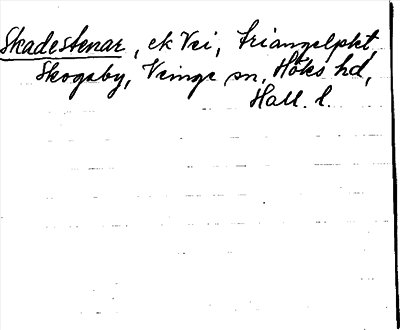 Skadestenar, ek Vei, triangelpkt,
Skogaby, Veinge sn, Höks hd,
Hall. l.